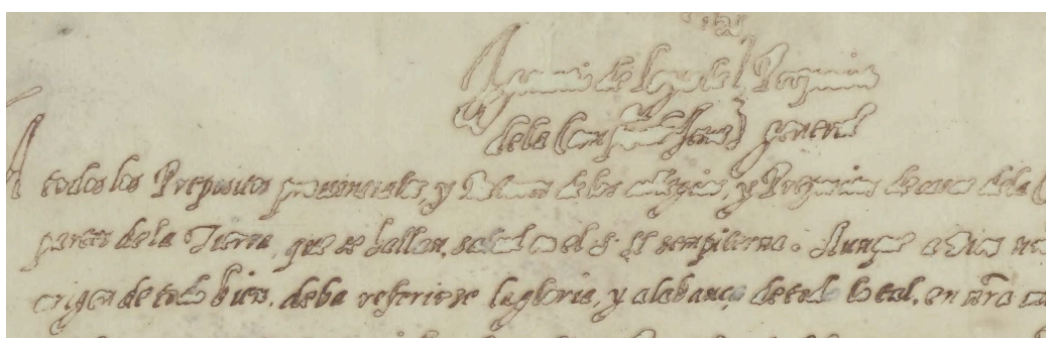 Ignacio de Loyola Preposito
dela Comp de Jesus general
A todos los Prepositos provinciales, y Rectores de los collegios, y Prepositos de casas dela
partes dela Tierra, que se hallan, salud en el S. sempiterna. Aunque a Dios
origen de todo bien, deba referirse la gloria, y alabança de todo lo tal, en nra